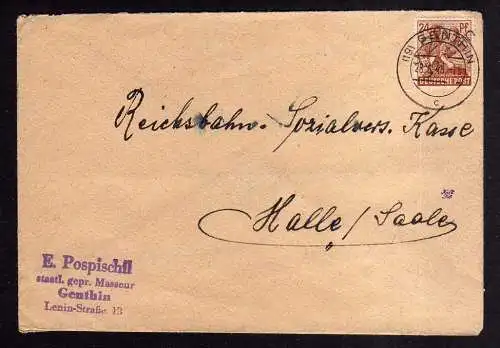 24 PF
DEUTSCHE POST
(19) GENTHIN
c
Reichsbahn-Sozialvers. Kasse
Halle/Saale
E. Pospischil
staatl. gepr. Masseur
Genthin
Lenin-Straße 13